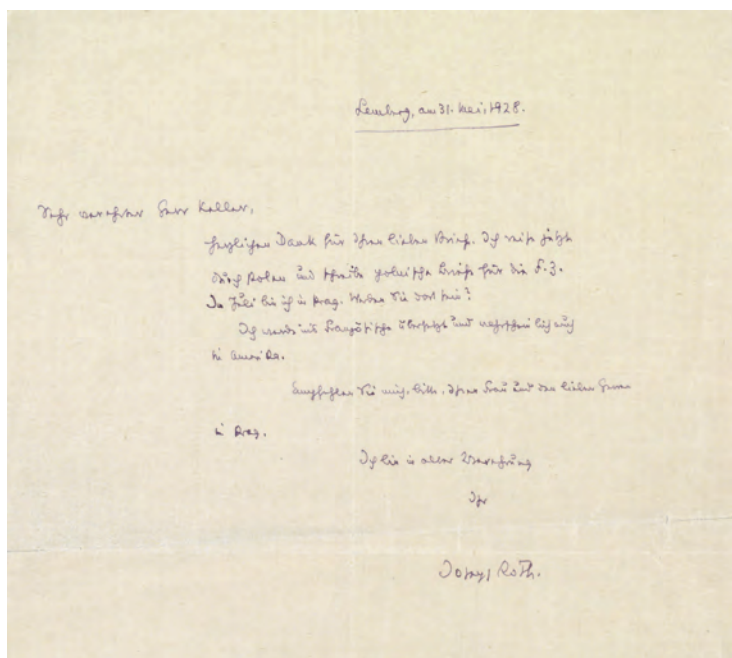 Lemberg, am 31. Mai, 1928.
Sehr verehrter Herr Keller,
herzlichen Dank für Ihren lieben Brief. Ich reise jetzt
durch Polen und schreibe polnische Briefe für die F.Z.
Im Juli bin ich in Prag. Werden Sie dort sein?
Ich werde ins Französische übersetzt und wahrscheinlich auch
in Amerika.
Empfehlen Sie mich, bitte, Ihrer Frau und den lieben Herren
in Prag.
Ich bin in aller Verehrung
Ihr
Joseph Roth.